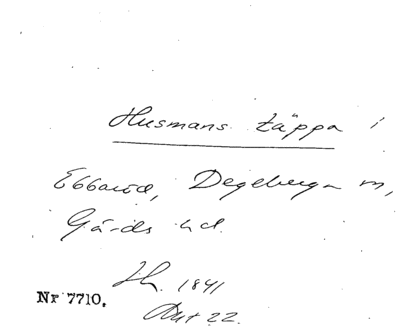 Husmans täppa i
Ebbaröd, Degeberga sn,
Gärds hd.
1841
Nr 7710.
22.